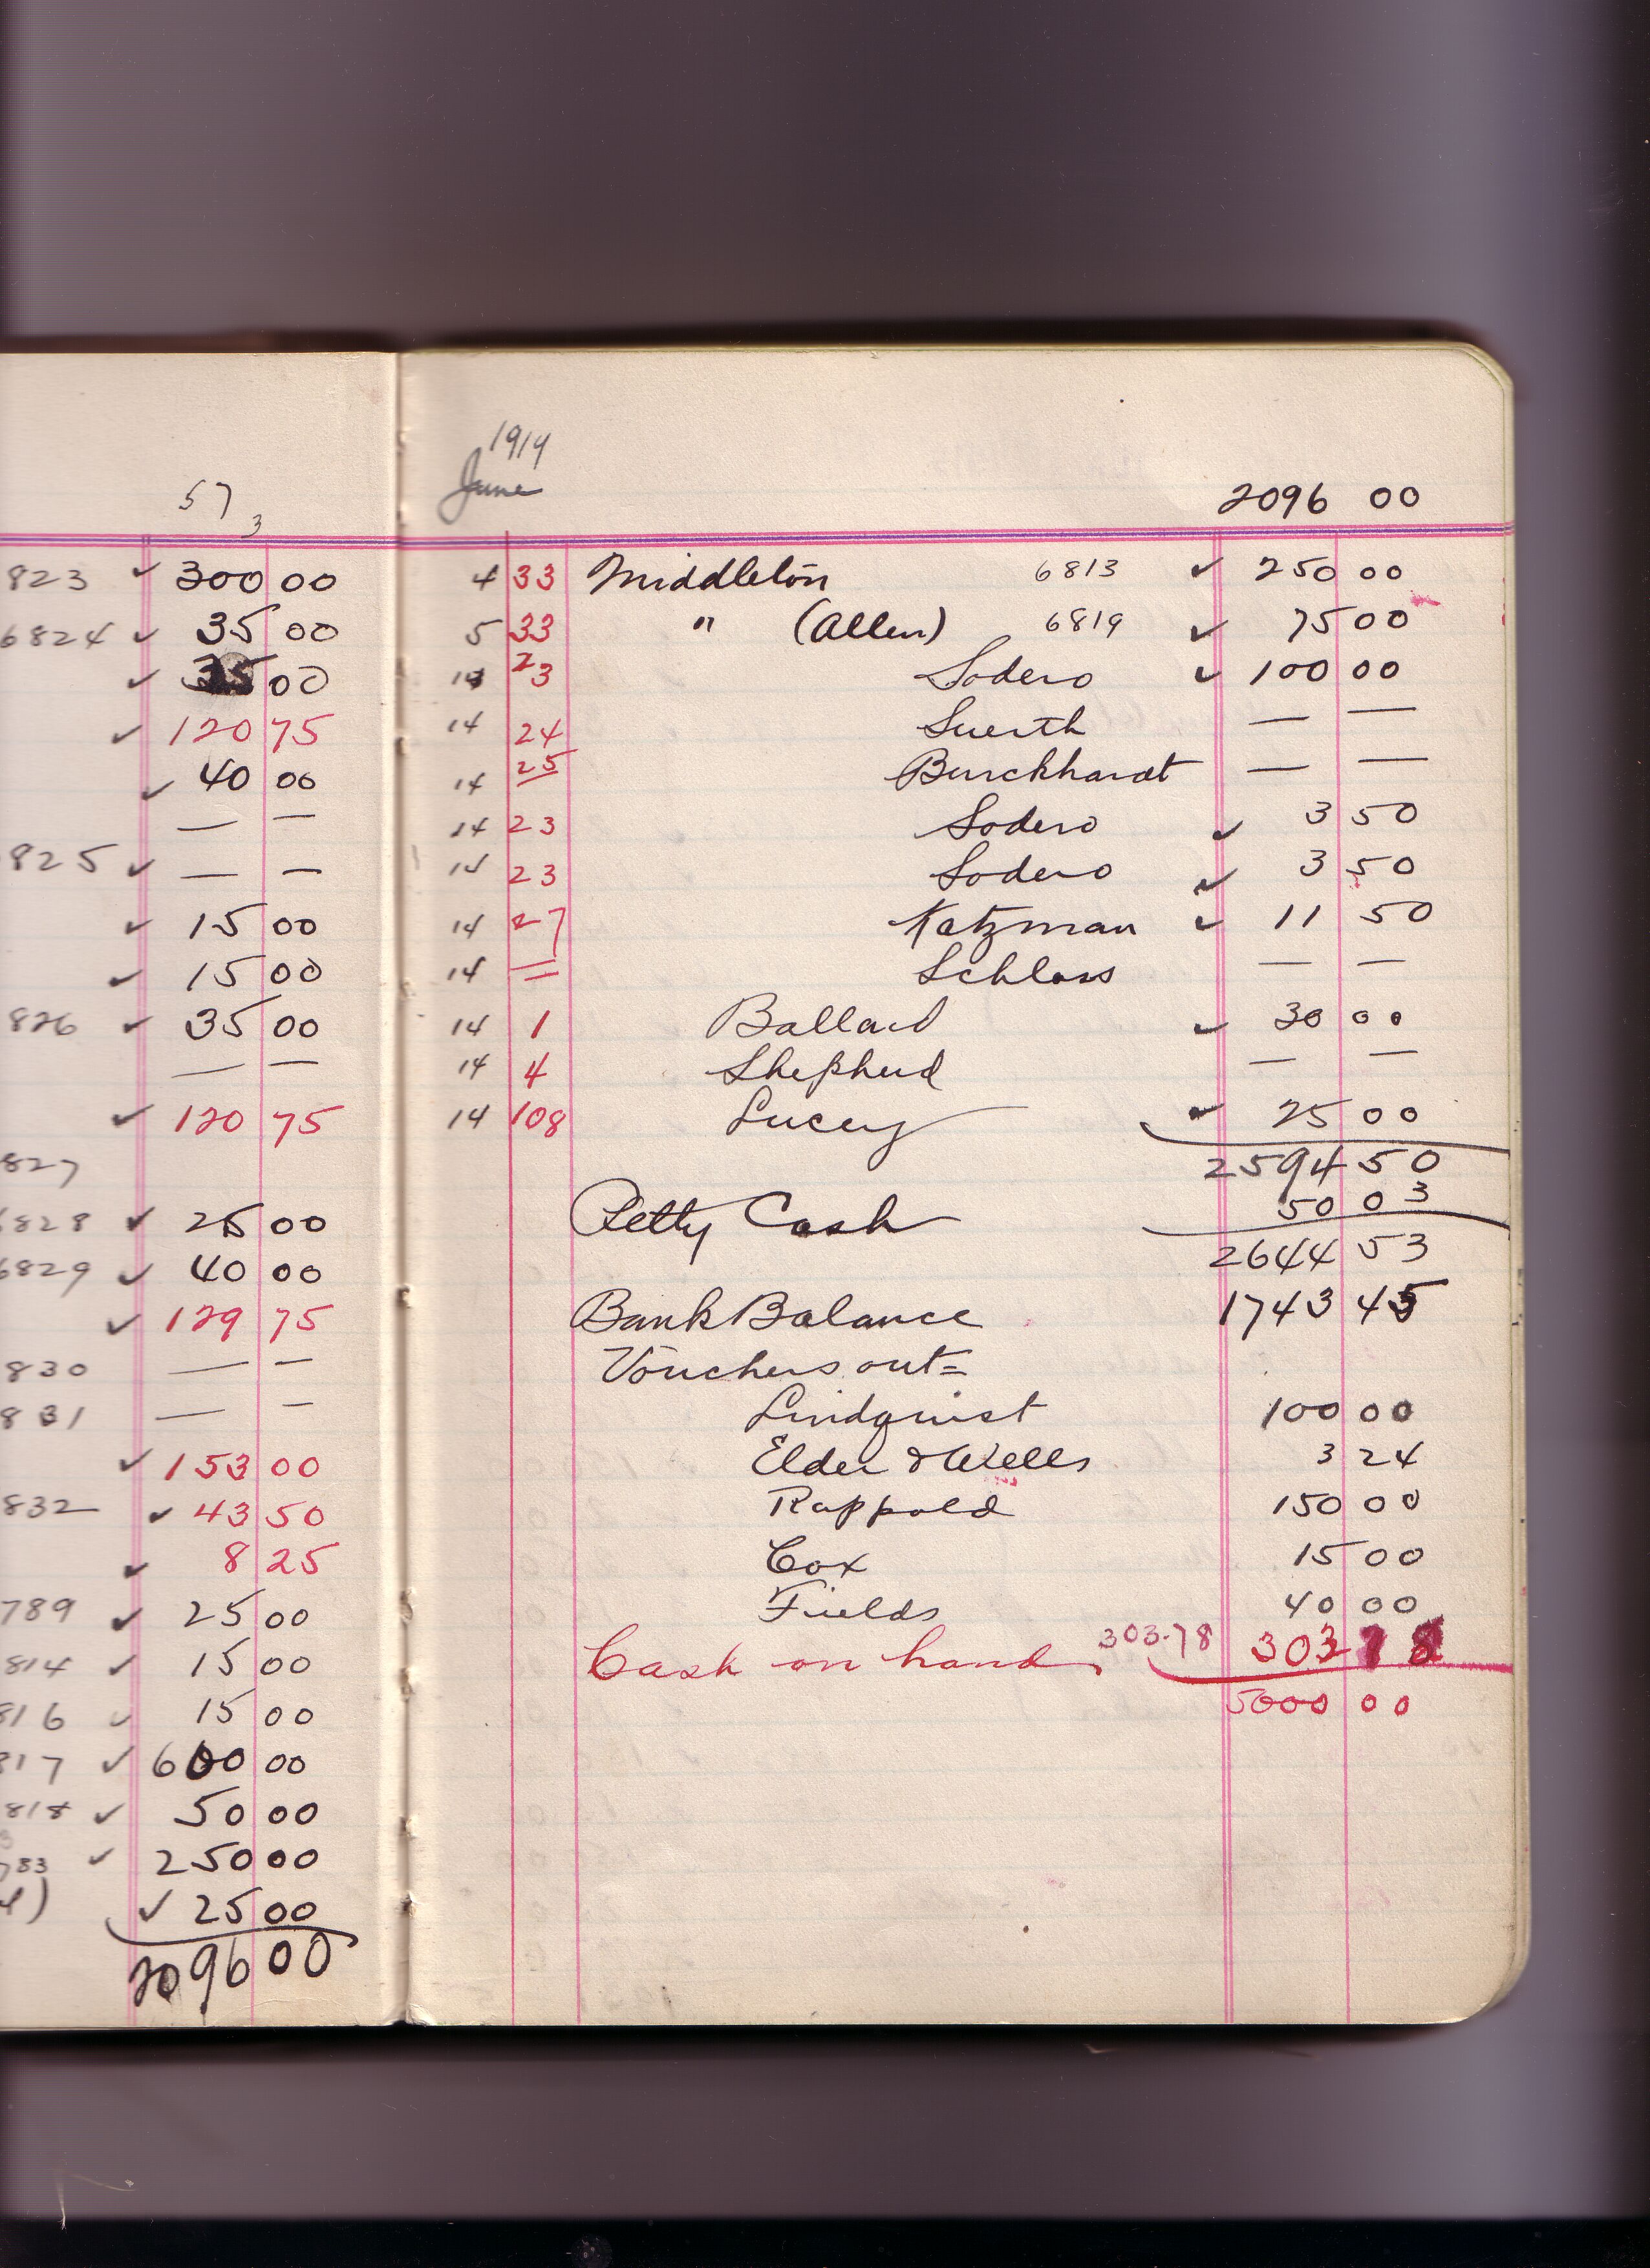 57
3
823 ✓ 300 00
6824 ✓ 35 00
✓ 35 00
✓ 120 75
✓ 40 00
— —
825 ✓ — —
✓ 15 00
✓ 15 00
826 ✓ 35 00
— —
✓ 120 75
827
6828 ✓ 25 00
6829 ✓ 40 00
✓ 129 75
830 — —
831 — —
✓ 153 00
832 ✓ 43 50
✓ 8 25
789 ✓ 25 00
814 ✓ 15 00
816 ✓ 15 00
817 ✓ 600 00
818 ✓ 50 00
783 ✓ 250 00
✓ 25 00
2096 00
1914
June
2096 00
4 33 Middleton 6813 ✓ 250 00
5 33 " (Allen) 6819 ✓ 75 00
13 23 Sodero ✓ 100 00
14 24 Suerth — —
14 25 Burckhardt — —
14 23 Sodero ✓ 3 50
14 23 Sodero ✓ 3 50
14 27 Katzman ✓ 11 50
14 = Schloss — —
14 1 Ballard ✓ 30 00
14 4 Shepherd — —
14 108 Lucey ✓ 25 00
2594 50
Petty Cash 50 03
2644 53
Bank Balance 1743 45
Vouchers out=
Lindquist 100 00
Elder & Wells 3 24
Rappold 150 00
Cox 15 00
Fields 40 00
Cash on hand 303.78 303 78
5000 00